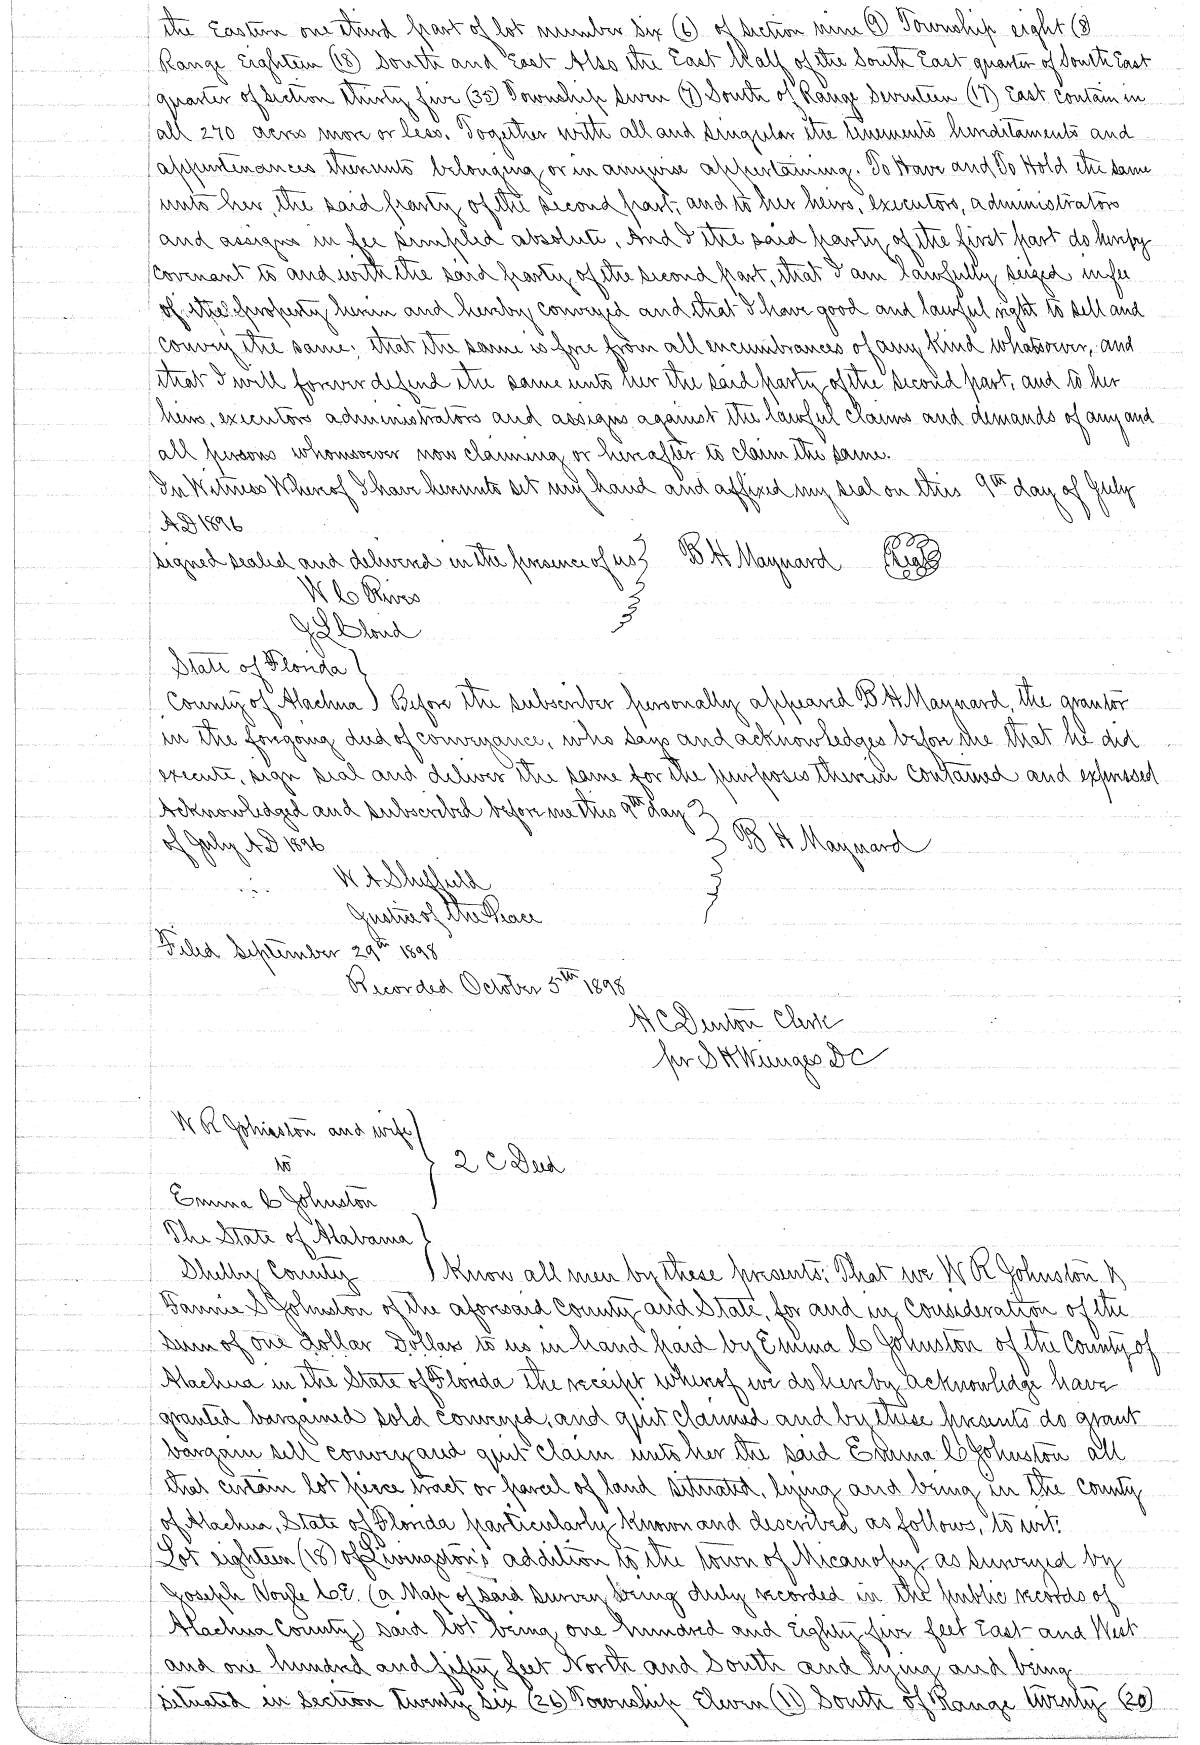 the Eastern one third part of lot number six (6) of section nine (9) Township eight (8)
Range Eighteen (18) South and East Also the East Half of the South East quarter of South East
quarter of section thirty five (35) Township seven (7) South of Range Seventeen (17) East contain in
all 270 acres more or less. Together with all and singular the tenements hereditaments and
appurtenances thereunto belonging or in anywise appertaining. To Have and To Hold the same
unto her, the said party of the second part, and to her heirs, executors, administrators
and assigns in fee simpled absolute. And I the said party of the first part do hereby
covenant to and with the said party of the second part, that I am lawfully seized in fee
of the property herein and hereby conveyed and that I have good and lawful right to sell and
convey the same; that the same is free from all encumbrances of any kind whatsoever, and
that I will forever defend the same unto her the said party of the second part, and to her
heirs, executors administrators and assigns against the lawful claims and demands of any and
all persons whomsoever now claiming or hereafter to claim the same.
In Witness Whereof I have hereunto set my hand and affixed my seal on this 9th day of July
AD 1896
signed sealed and delivered in the presence of us B H Maynard Seal
W C Rives
J L Cloud
State of Florida
County of Alachua Before the subscriber personally appeared B H Maynard, the grantor
in the foregoing deed of conveyance, who says and acknowledges before me that he did
execute, sign seal and deliver the same for the purposes therein contained and expressed
Acknowledged and subscribed before me this 9th day
of July AD 1896 B H Maynard
W A Sheffield
Justice of the Peace
Filed September 29th 1898
Recorded October 5th 1898
H C Denton Clerk
per S H Wienges DC
W R Johnston and wife
to 2 C Deed
Emma C Johnston
The State of Alabama
Shelby County Know all men by these presents; That we W R Johnston &
Fannie S Johnston of the aforesaid County and State, for and in consideration of the
sum of one dollar Dollars to us in hand paid by Emma C Johnston of the County of
Alachua in the State of Florida the receipt whereof we do hereby acknowledge have
granted bargained sold conveyed, and quit claimed and by these presents do grant
bargain sell convey and quit claim unto her the said Emma C Johnston all
that certain lot piece tract or parcel of land situated, lying and being in the county
of Alachua, State of Florida particularly known and described as follows, to wit:
Lot eighteen (18) of Livingston's addition to the town of Micanopy, as surveyed by
Joseph Voyle C.E. (a Map of said survey being duly recorded in the public records of
Alachua County) said lot being one hundred and Eighty five feet East and West
and one hundred and fifty feet North and South and lying and being
situated in section twenty six (26) Township Eleven (11) South of Range twenty (20)